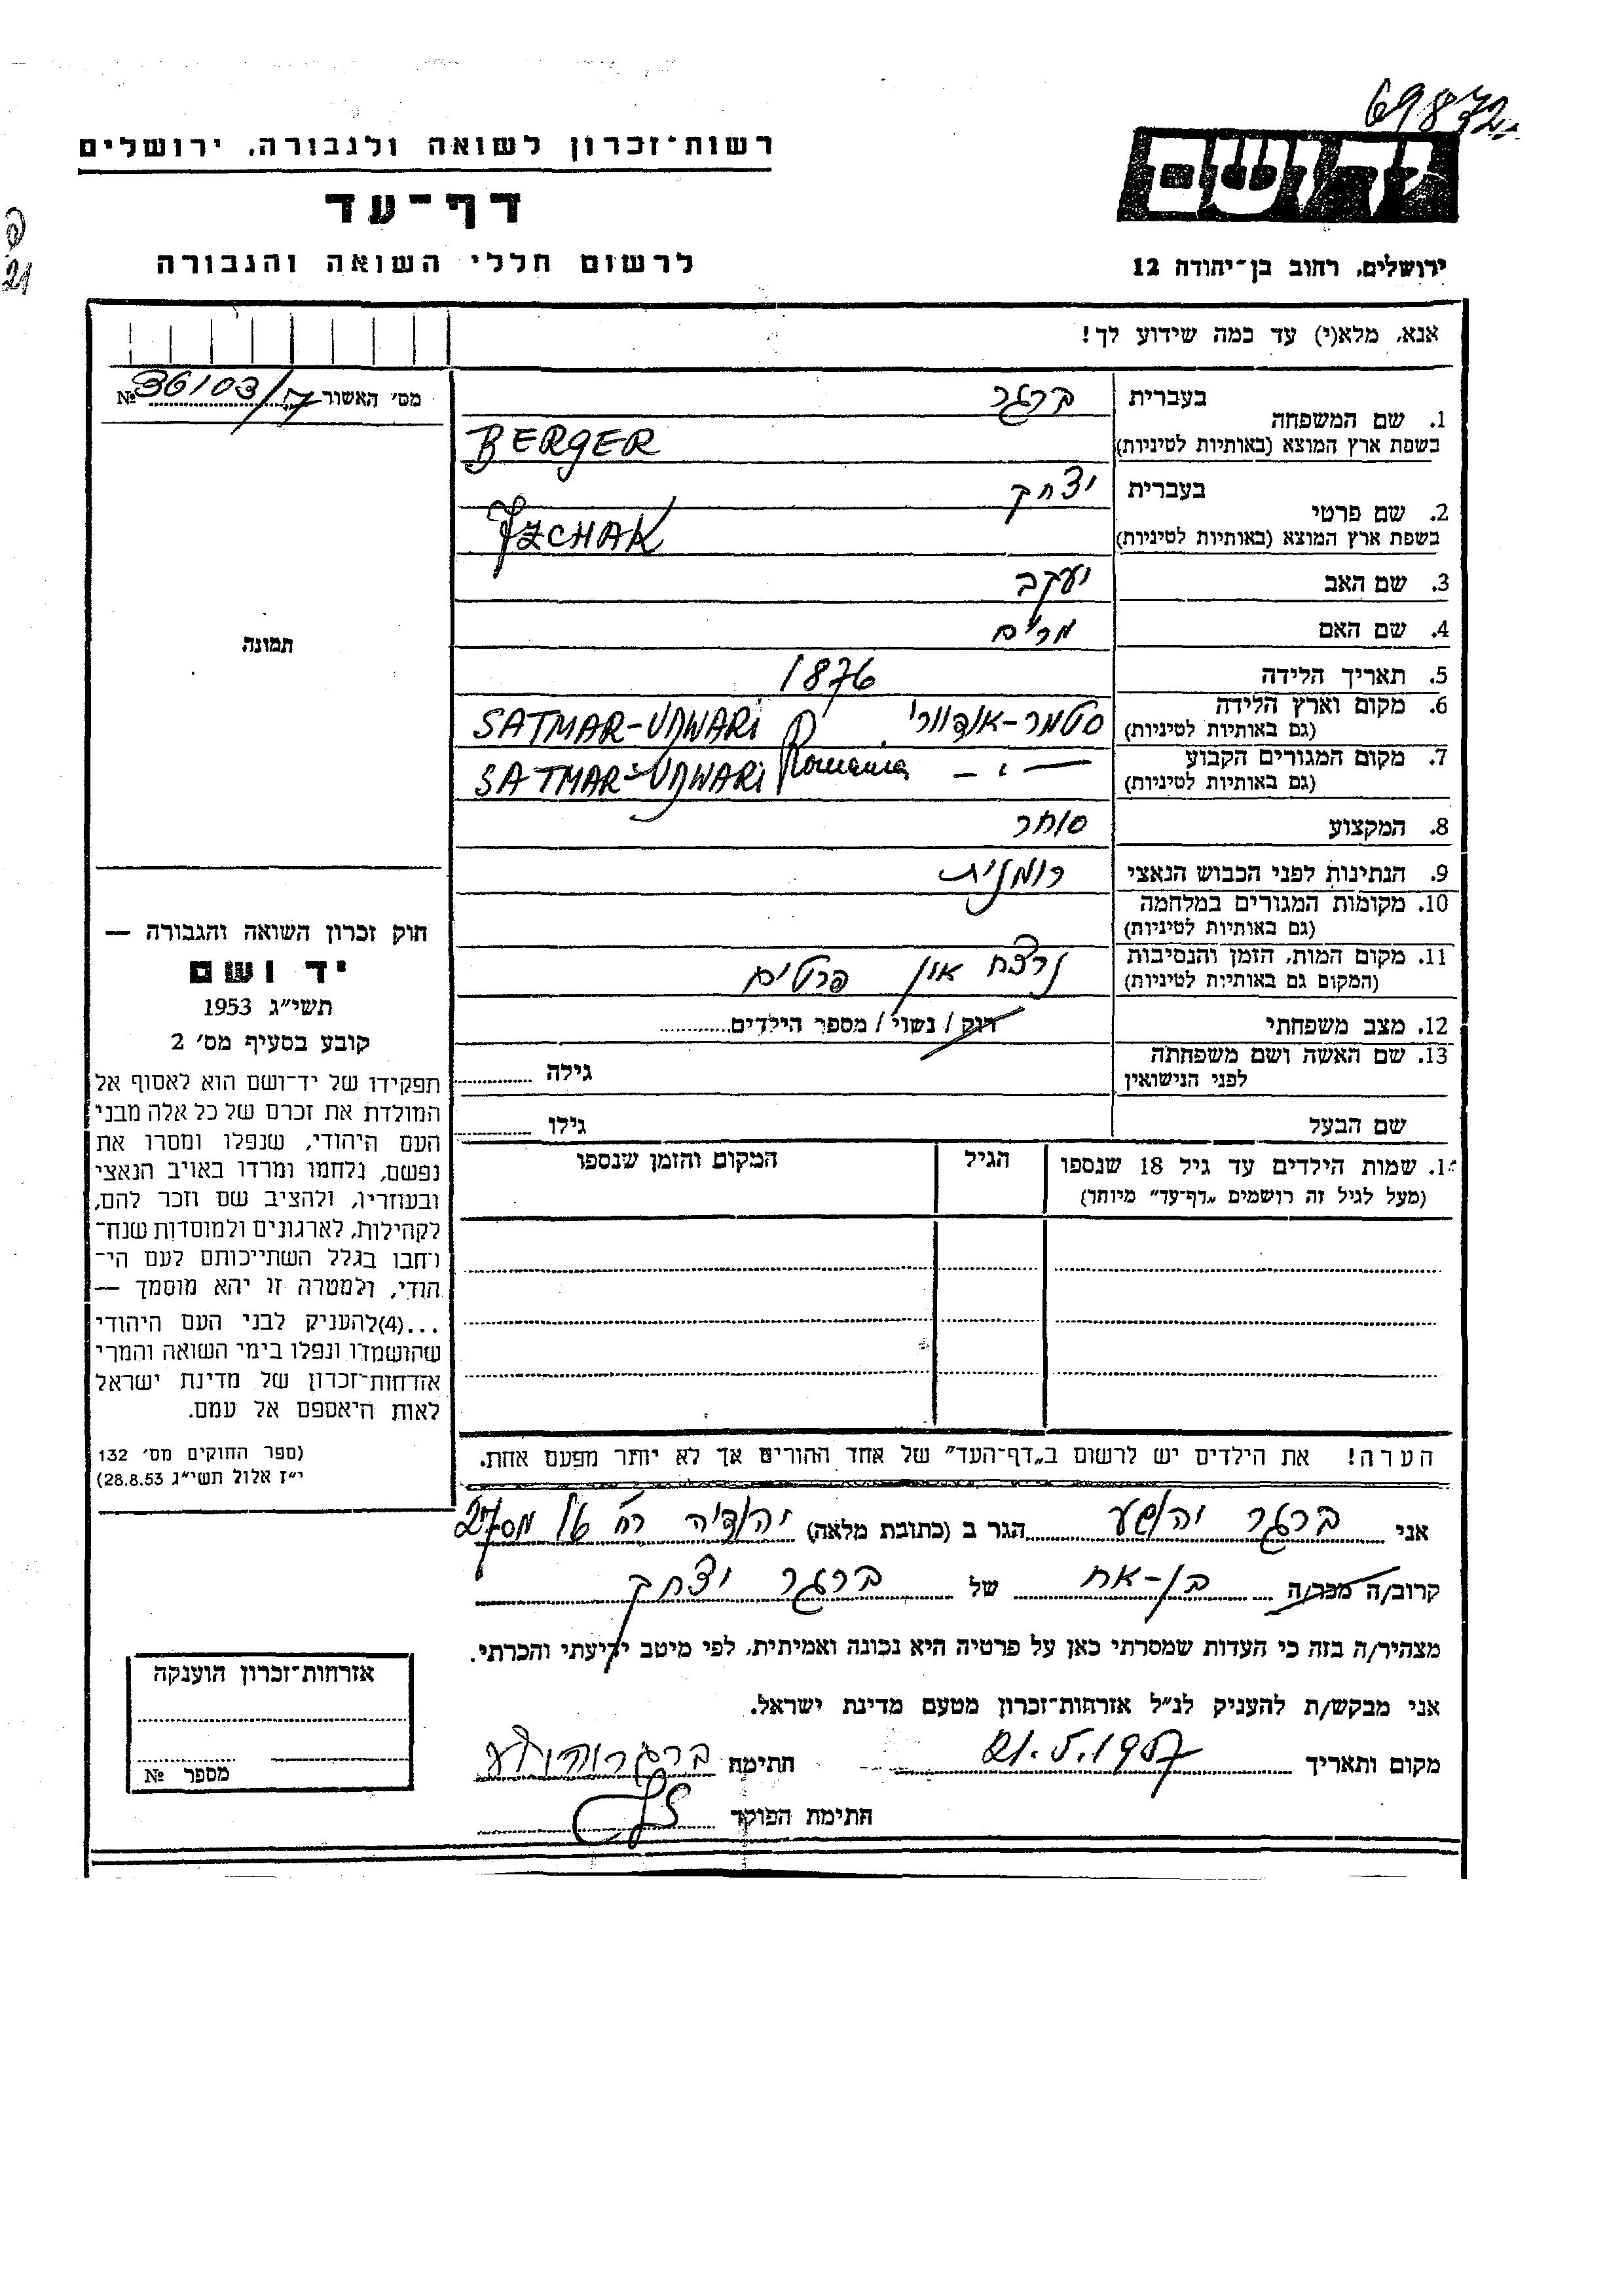 69872
יד ושם
רשות-זכרון לשואה ולגבורה, ירושלים
דף-עד
לרשום חללי השואה והגבורה
ירושלים, רחוב בן-יהודה 12
21
אנא, מלא(י) עד כמה שידוע לך!
מס׳ האשור № 36103/
1. שם המשפחה
בעברית ברגר
בשפת ארץ המוצא (באותיות לטיניות) BERGER
2. שם פרטי
בעברית יצחק
בשפת ארץ המוצא (באותיות לטיניות) IZCHAK
3. שם האב יעקב
4. שם האם מרים
5. תאריך הלידה 1876
6. מקום וארץ הלידה
(גם באותיות לטיניות) SATMAR-UJWARI
7. מקום המגורים הקבוע
(גם באותיות לטיניות) SATMAR-UJWARI Romania
8. המקצוע סוחר
9. הנתינות לפני הכבוש הנאצי רומנית
10. מקומות המגורים במלחמה
(גם באותיות לטיניות)
11. מקום המות, הזמן והנסיבות
(המקום גם באותיות לטיניות) נרצח אין פרטים
12. מצב משפחתי רוק / נשוי / מספר הילדים
13. שם האשה ושם משפחתה
לפני הנישואין גילה
שם הבעל גילו
1. שמות הילדים עד גיל 18 שנספו
(מעל לגיל זה רושמים „דף-עד" מיוחד)
הגיל
המקום והזמן שנספו
הערה! את הילדים יש לרשום ב„דף-העד" של אחד ההורים אך לא יותר מפעם אחת.
תמונה
חוק זכרון השואה והגבורה —
יד ושם
תשי״ג 1953
קובע בסעיף מס׳ 2
תפקידו של יד-ושם הוא לאסוף אל
המולדת את זכרם של כל אלה מבני
העם היהודי, שנפלו ומסרו את
נפשם, נלחמו ומרדו באויב הנאצי
ובעוזריו, ולהציב שם וזכר להם,
לקהילות, לארגונים ולמוסדות שנח-
רבו בגלל השתייכותם לעם הי-
הודי, ולמטרה זו יהא מוסמך —
...(4)להעניק לבני העם היהודי
שהושמדו ונפלו בימי השואה והמרי
אזרחות-זכרון של מדינת ישראל
לאות היאספם אל עמם.
(ספר החוקים מס׳ 132
י״ז אלול תשי״ג 28.8.53)
אני ברגר יהושע הגר ב (כתובת מלאה) יהודיה רח׳
קרוב/ה מכר/ה בן-אח של ברגר יצחק
מצהיר/ה בזה כי העדות שמסרתי כאן על פרטיה היא נכונה ואמיתית, לפי מיטב ידיעתי והכרתי.
אני מבקש/ת להעניק לנ״ל אזרחות-זכרון מטעם מדינת ישראל.
מקום ותאריך 21.5.1957 חתימה ברגר יהושע
חתימת הפוקד
אזרחות-זכרון הוענקה
מספר №